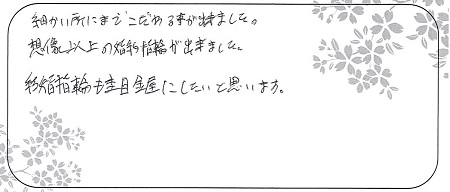 細かい所にまでこだわる事が出来ました。
想像以上の婚約指輪が出来ました。
結婚指輪も杢目金屋にしたいと思います。